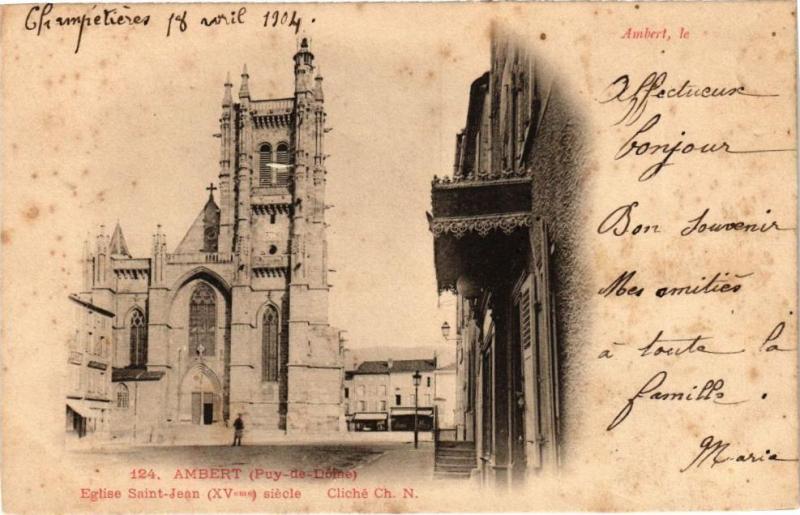 Champétières 18 avril 1904.
Ambert, le
Affectueux
bonjour
Bon Souvenir
Mes amitiés
à toute la
famille.
Maria
124. AMBERT (Puy-de-Dôme)
Eglise Saint-Jean (XVeme) siècle Cliché Ch. N.